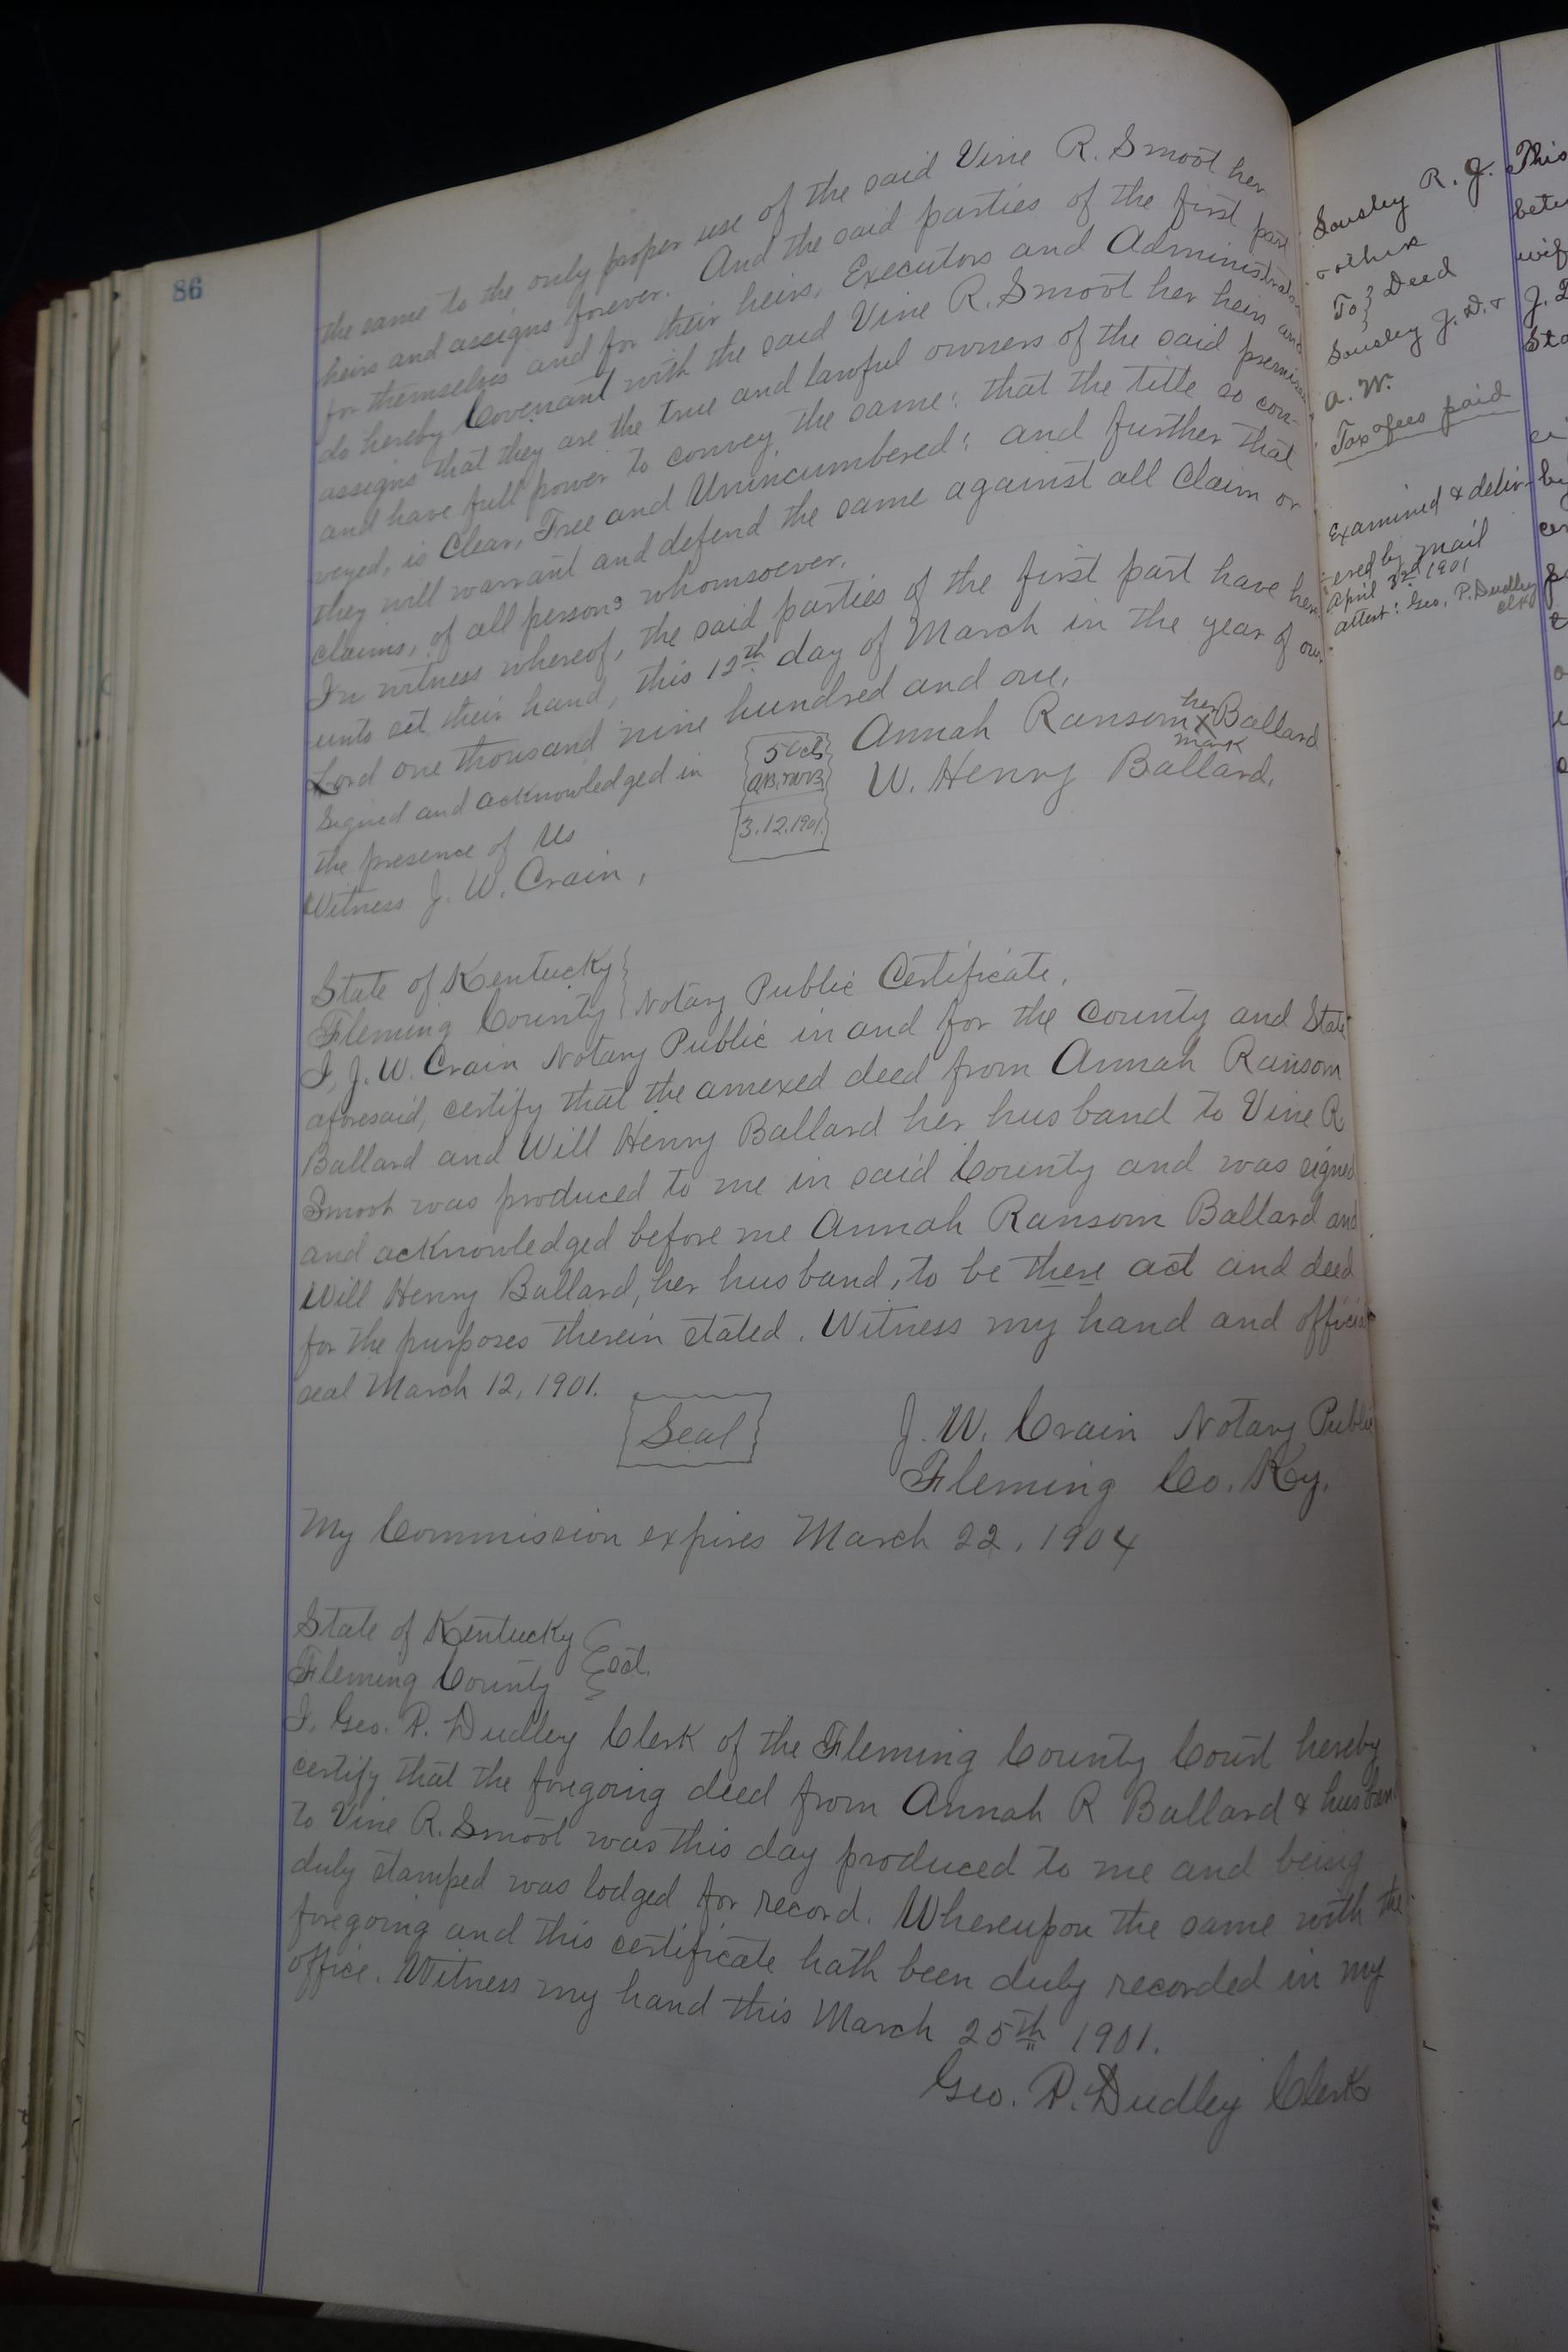 86
the same to the only proper use of the said Vine R. Smoot her
heirs and assigns forever. And the said parties of the first part
for themselves and for their heirs, Executors and Administrators
do hereby Covenant with the said Vine R. Smoot her heirs and
assigns that they are the true and lawful owners of the said premises
and have full power to convey the same: that the title so con-
veyed, is Clear, Free and Unincumbered: and further that
they will warrant and defend the same against all Claim or
claims, of all persons whomsoever.
In witness whereof, the said parties of the first part have here-
unto set their hand, this 12th day of March in the year of our
Lord one thousand nine hundred and one.
Signed and acknowledged in
the presence of Us
Witness J. W. Crain,
50cts
3.12.1901.
Annah Ransom her x mark Ballard
W. Henry Ballard.
State of Kentucky
Fleming County } Notary Public Certificate.
I, J. W. Crain Notary Public in and for the County and State
aforesaid, certify that the annexed deed from Annah Ransom
Ballard and Will Henry Ballard her husband to Vine R.
Smoot was produced to me in said County and was signed
and acknowledged before me Annah Ransom Ballard and
Will Henry Ballard, her husband, to be there act and deed
for the purposes therein stated. Witness my hand and official
seal March 12, 1901.
Seal
J. W. Crain Notary Public
Fleming Co. Ky.
My Commission expires March 22, 1904
State of Kentucky
Fleming County } Sct.
I, Geo. P. Dudley Clerk of the Fleming County Court hereby
certify that the foregoing deed from Annah R Ballard & husban
to Vine R. Smoot was this day produced to me and being
duly stamped was lodged for record. Whereupon the same with the
foregoing and this certificate hath been duly recorded in my
office. Witness my hand this March 25th 1901.
Geo. P. Dudley Clerk
Sousley R. J.
To } Deed
Sousley J. D. &
A. W.
Tax & fees paid
Examined & deliv-
ered by mail
April 3rd 1901
attest: Geo. P. Dudley
clk
This
wif
J.